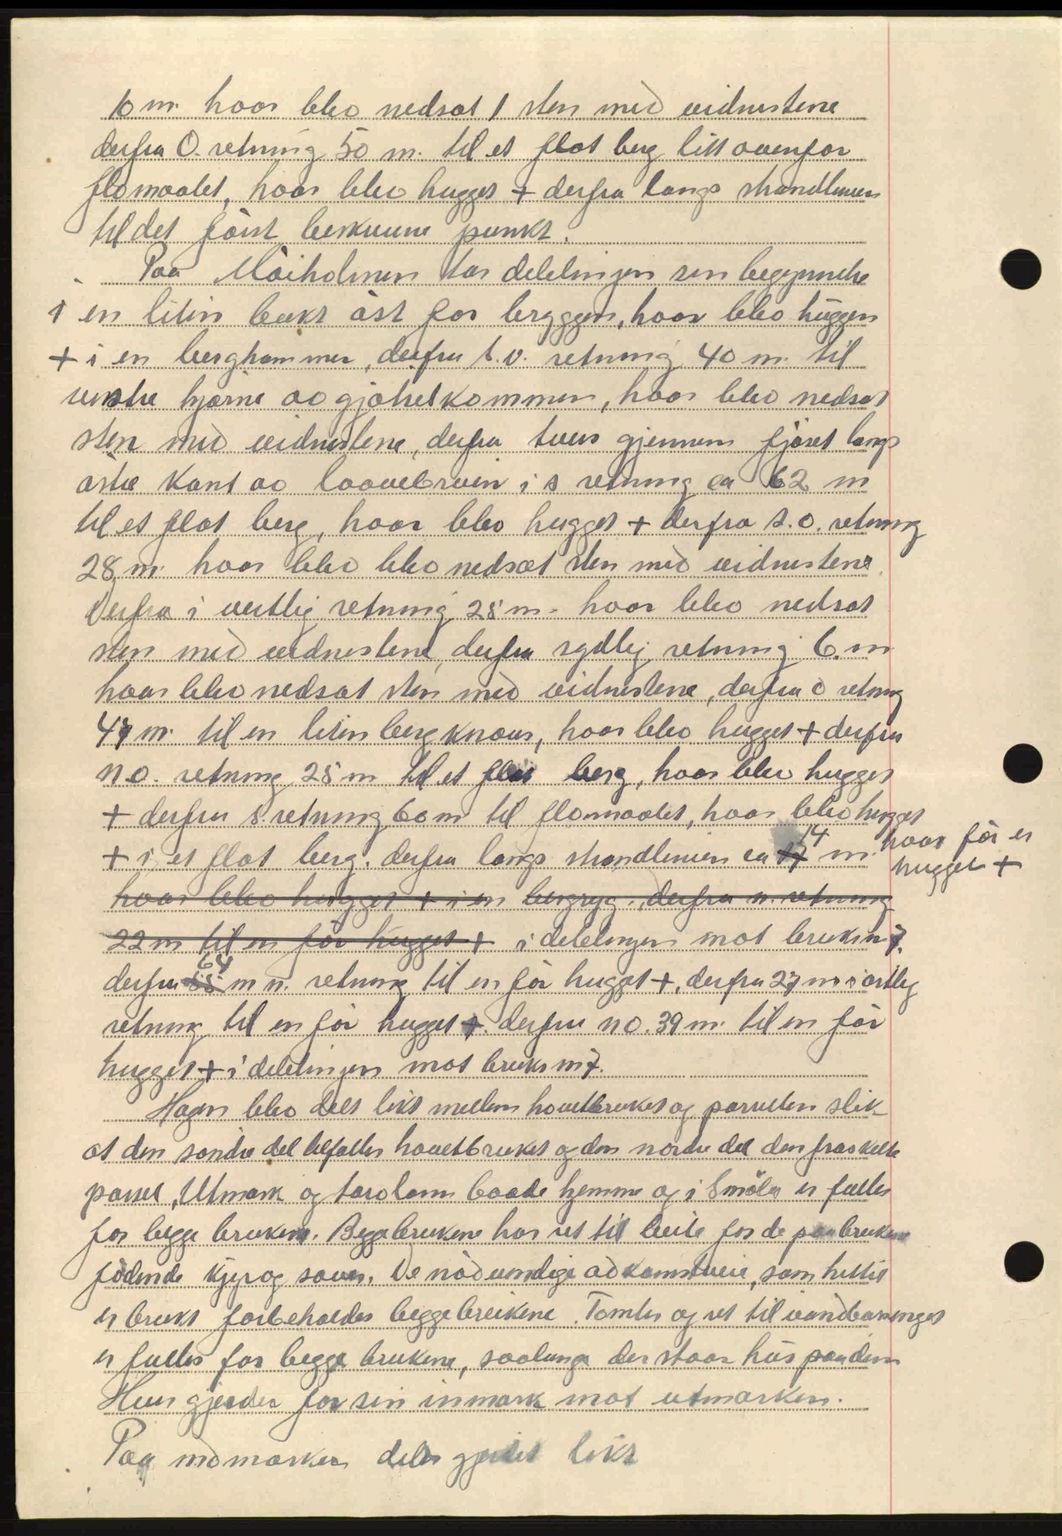 10 m. hvor blev nedsat 1 sten med vidnestene
derfra O. retning 50 m. til et flat berg litt ovenfor
flomaalet, hvor blev hugget + derfra langs strandlinien
til det först beskrevne punkt.
Paa Maiholmen tar delelingen sin begynnelse
i en liten bukt öst for bryggen, hvor blev huggen
+ i en berghammer, derfra s.v. retning 40 m. til
venstre hjörne av gjödselkommen, hvor blev nedsat
sten med vidnestene, derfra tvers gjennem fjöset langs
östre kant av laavebruen i s retning ca 62 m
til et flat berg, hvor blev hugget + derfra s.o. retning
28 m. hvor blev blev nedsat sten med vidnestene
Derfra i vestlig retning 28 m. hvor blev nedsat
sten med vidnestene, derfra sydlig retning 6. m
hvor blev nedsat sten med vidnestene, derfra o retning
47 m. til en liten bergknaus, hvor blev hugget + derfra
n.o. retning 28 m til et flat berg, hvor blev hugget
+ derfra s. retning 60 m til flomaalet, hvor blev hugget
+ i et flat berg. derfra langs strandlinien ca 14 m. hvor för er
hugget +
hvor blev hugget + i en bergryg, derfra n. retning
22 m til en för hugget + i delelingen mot bruksn 7.
derfra 64 m n. retning til en för hugget +, derfra 27 m i östlig
retning til en för hugget +. derfra n o. 39 m. til en för
hugget + i delelingen mot bruks n 7.
Hagen blev delt likt mellem hovetbruket og parsellen slik
at den söndre del tilfaller hovetbruket og den nordre del den fraskilte
parsel. Utmark og torvlann baade hjemme og i Smöla er felles
for begge brukene. Begge brukene har ret til beite for de paa brukene
födende kjyr og sauer. De nödvendige adkomstveie, som hittil
er brukt forbeholdes begge brukene. Tomter og ret til vandbaringer
er felles for begge brukene, saalenge der staar hus paa dem
Hver gjerder for sin inmark mot utmarken.
Paa indmarken deles gjerdet likt